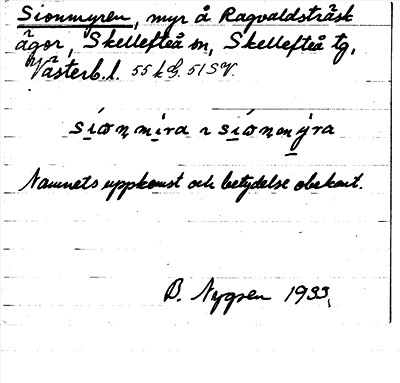 Sionmyren, myr å Ragvaldsträsk
ägor, Skellefteå sn, Skellefteå tg,
Västerb.l. 55 k d, 51 SV.
síonmira ~ síonmýra
Namnets uppkomst och betydelse obekant.
B. Nygren 1933.